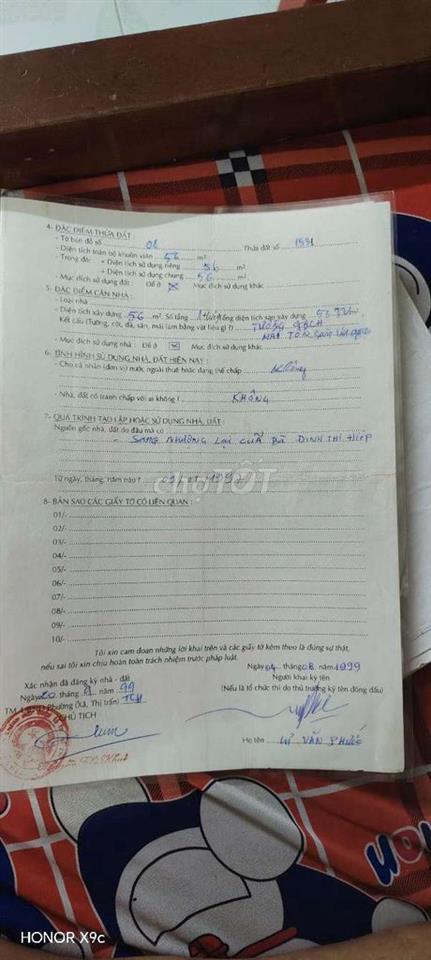 4- ĐẶC ĐIỂM THỬA ĐẤT :
- Tờ bản đồ số 02 Thửa đất số 1531
- Diện tích toàn bộ khuôn viên 56 m²
- Trong đó: + Diện tích sử dụng riêng 56 m²
+ Diện tích sử dụng chung 56 m²
- Mục đích sử dụng đất: Để ở Mục đích sử dụng khác
5- ĐẶC ĐIỂM CĂN NHÀ :
- Loại nhà
- Diện tích xây dựng 56 m². Số tầng tổng diện tích sàn xây dựng 56
Kết cấu (Tường, cột, đà, sàn, mái làm bằng vật liệu gì ?) TƯỜNG GẠCH
MÁI TÔN
- Mục đích sử dụng nhà : Để ở Mục đích sử dụng khác
6- TÌNH HÌNH SỬ DỤNG NHÀ, ĐẤT HIỆN NAY :
- Cho cá nhân (đơn vị) nước ngoài thuê hoặc đang thế chấp Không
- Nhà, đất có tranh chấp với ai không ! KHÔNG
7- QUÁ TRÌNH TẠO LẬP HOẶC SỬ DỤNG NHÀ, ĐẤT :
Nguồn gốc nhà, đất do đâu mà có
- SANG NHƯỢNG LẠI CỦA BÀ ĐINH THỊ HIỆP
Từ ngày, tháng, năm nào ?
chợTỐT
8- BẢN SAO CÁC GIẤY TỜ CÓ LIÊN QUAN :
01/-
02/-
03/-
04/-
05/-
06/-
07/-
08/-
09/-
10/-
Tôi xin cam đoan những lời khai trên và các giấy tờ kèm theo là đúng sự thật,
nếu sai tôi xin chịu hoàn toàn trách nhiệm trước pháp luật.
Ngày 04 tháng 08 năm 1999
Xác nhận đã đăng ký nhà - đất
Người khai ký tên
Ngày 20 tháng năm 99
(Nếu là tổ chức thì do thủ trưởng ký tên đóng dấu)
TM. UBND Phường (Xã, Thị trấn) TCH
CHỦ TỊCH
Họ tên VĂN PHƯỚC
HONOR X9c